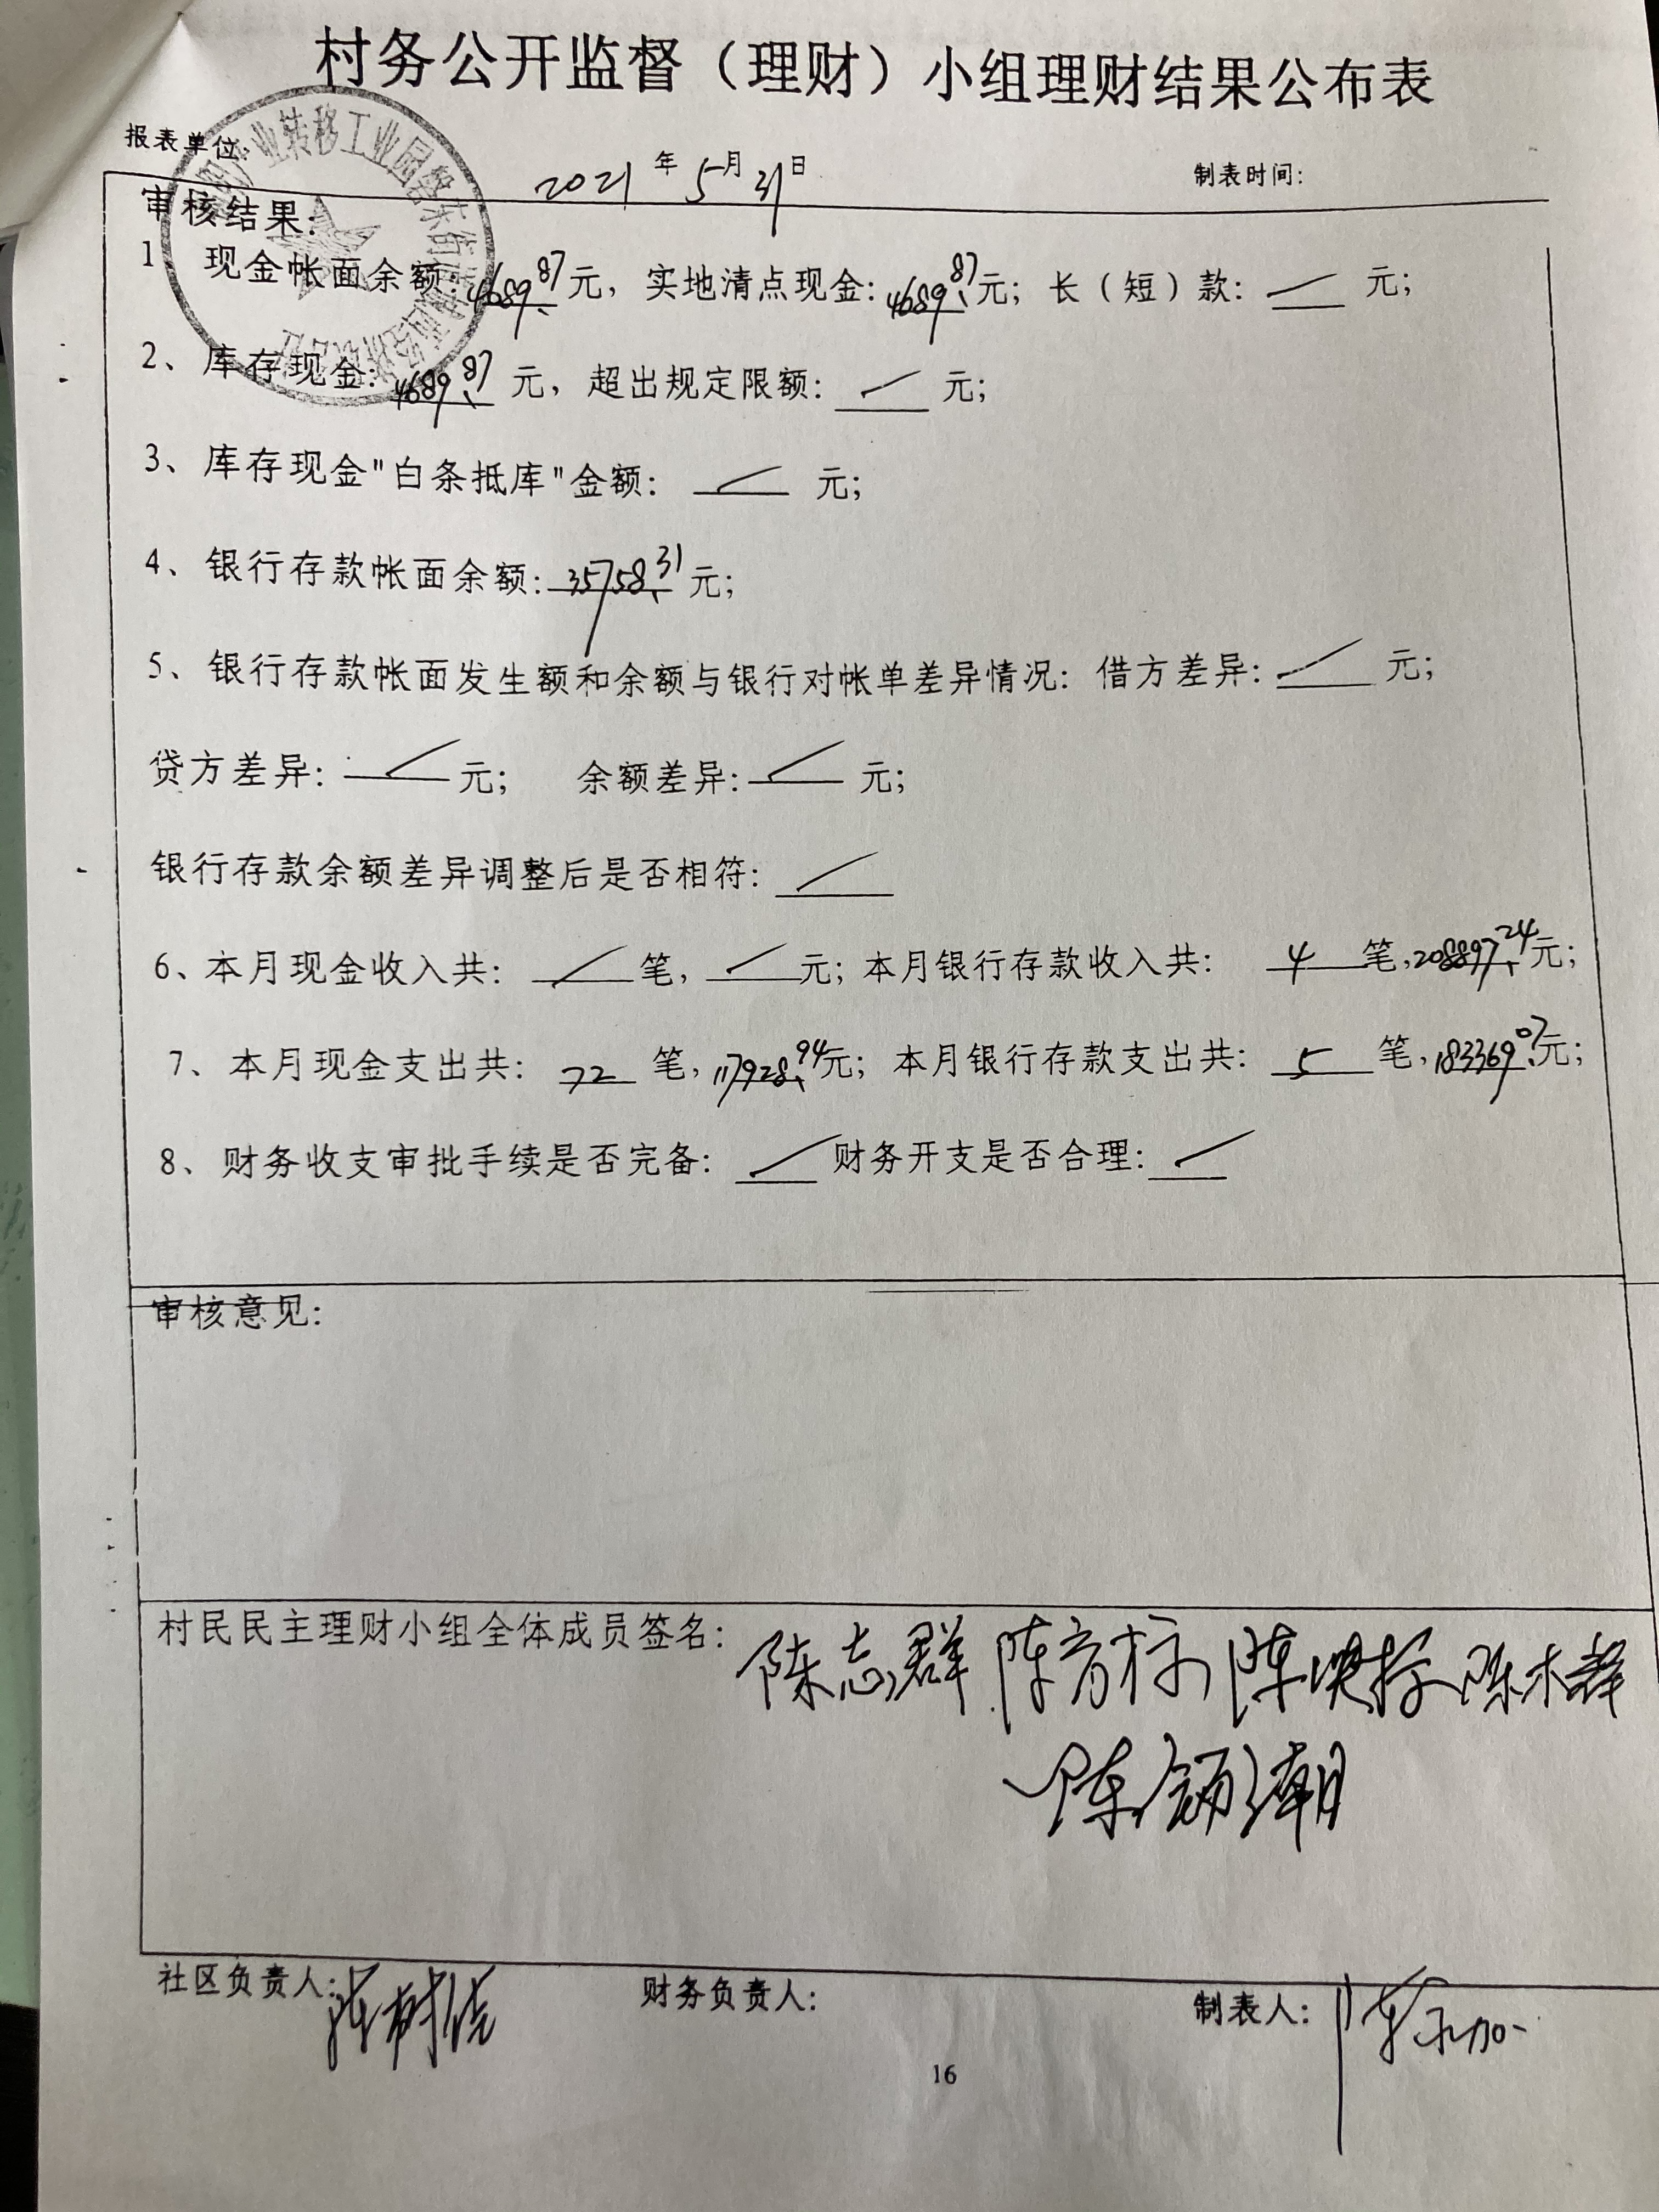 村务公开监督（理财）小组理财结果公布表
报表单位: 2021 年 5 月 31 日 制表时间:
审核结果:
1、现金帐面余额: 4689.87 元，实地清点现金: 4689.87 元；长（短）款: / 元；
2、库存现金: 4689.87 元，超出规定限额: / 元；
3、库存现金"白条抵库"金额: / 元；
4、银行存款帐面余额: 35758.31 元；
5、银行存款帐面发生额和余额与银行对帐单差异情况: 借方差异: / 元；
贷方差异: / 元； 余额差异: / 元；
银行存款余额差异调整后是否相符: /
6、本月现金收入共: / 笔， / 元；本月银行存款收入共: 4 笔，208897.24 元；
7、本月现金支出共: 72 笔，117928.94 元；本月银行存款支出共: 5 笔，183369.07 元；
8、财务收支审批手续是否完备: / 财务开支是否合理: /
审核意见:
村民民主理财小组全体成员签名: 陈志群 陈木群
社区负责人: 财务负责人: 制表人:
16